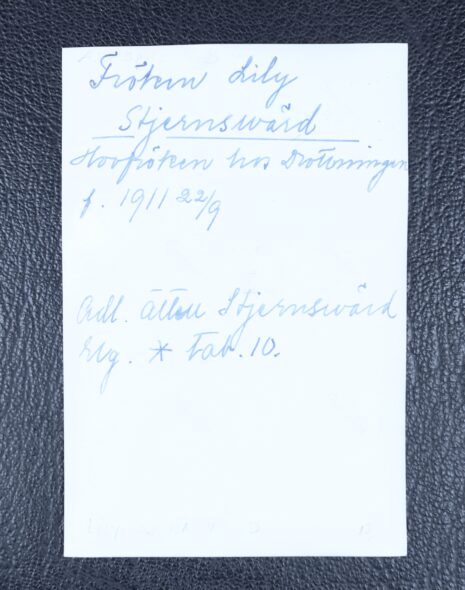 Fröken Lily
Stjernswärd
Hovfröken hos Drottningen
f. 1911 22/9
Adl. ätten Stjernswärd
Elg. * Tab. 10.